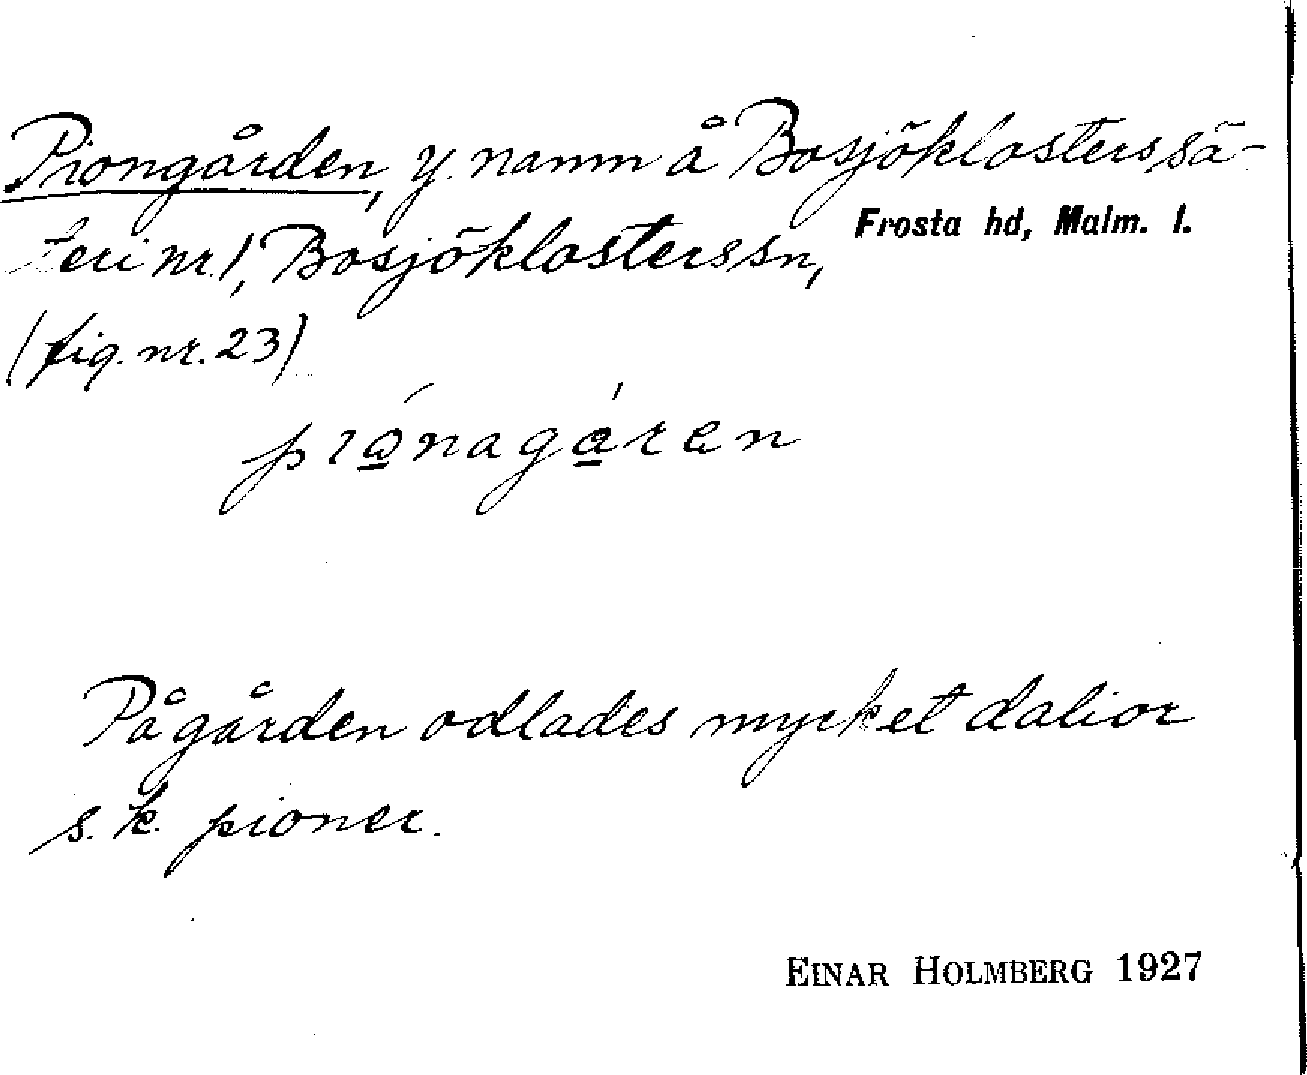 Piongården, y. namn å Bosjöklosters sä-
teri nr 1, Bosjöklosters sn, Frosta hd, Malm. l.
(fig. nr. 23)
På gården odlades mycket dalior
s. k. pioner.
EINAR HOLMBERG 1927